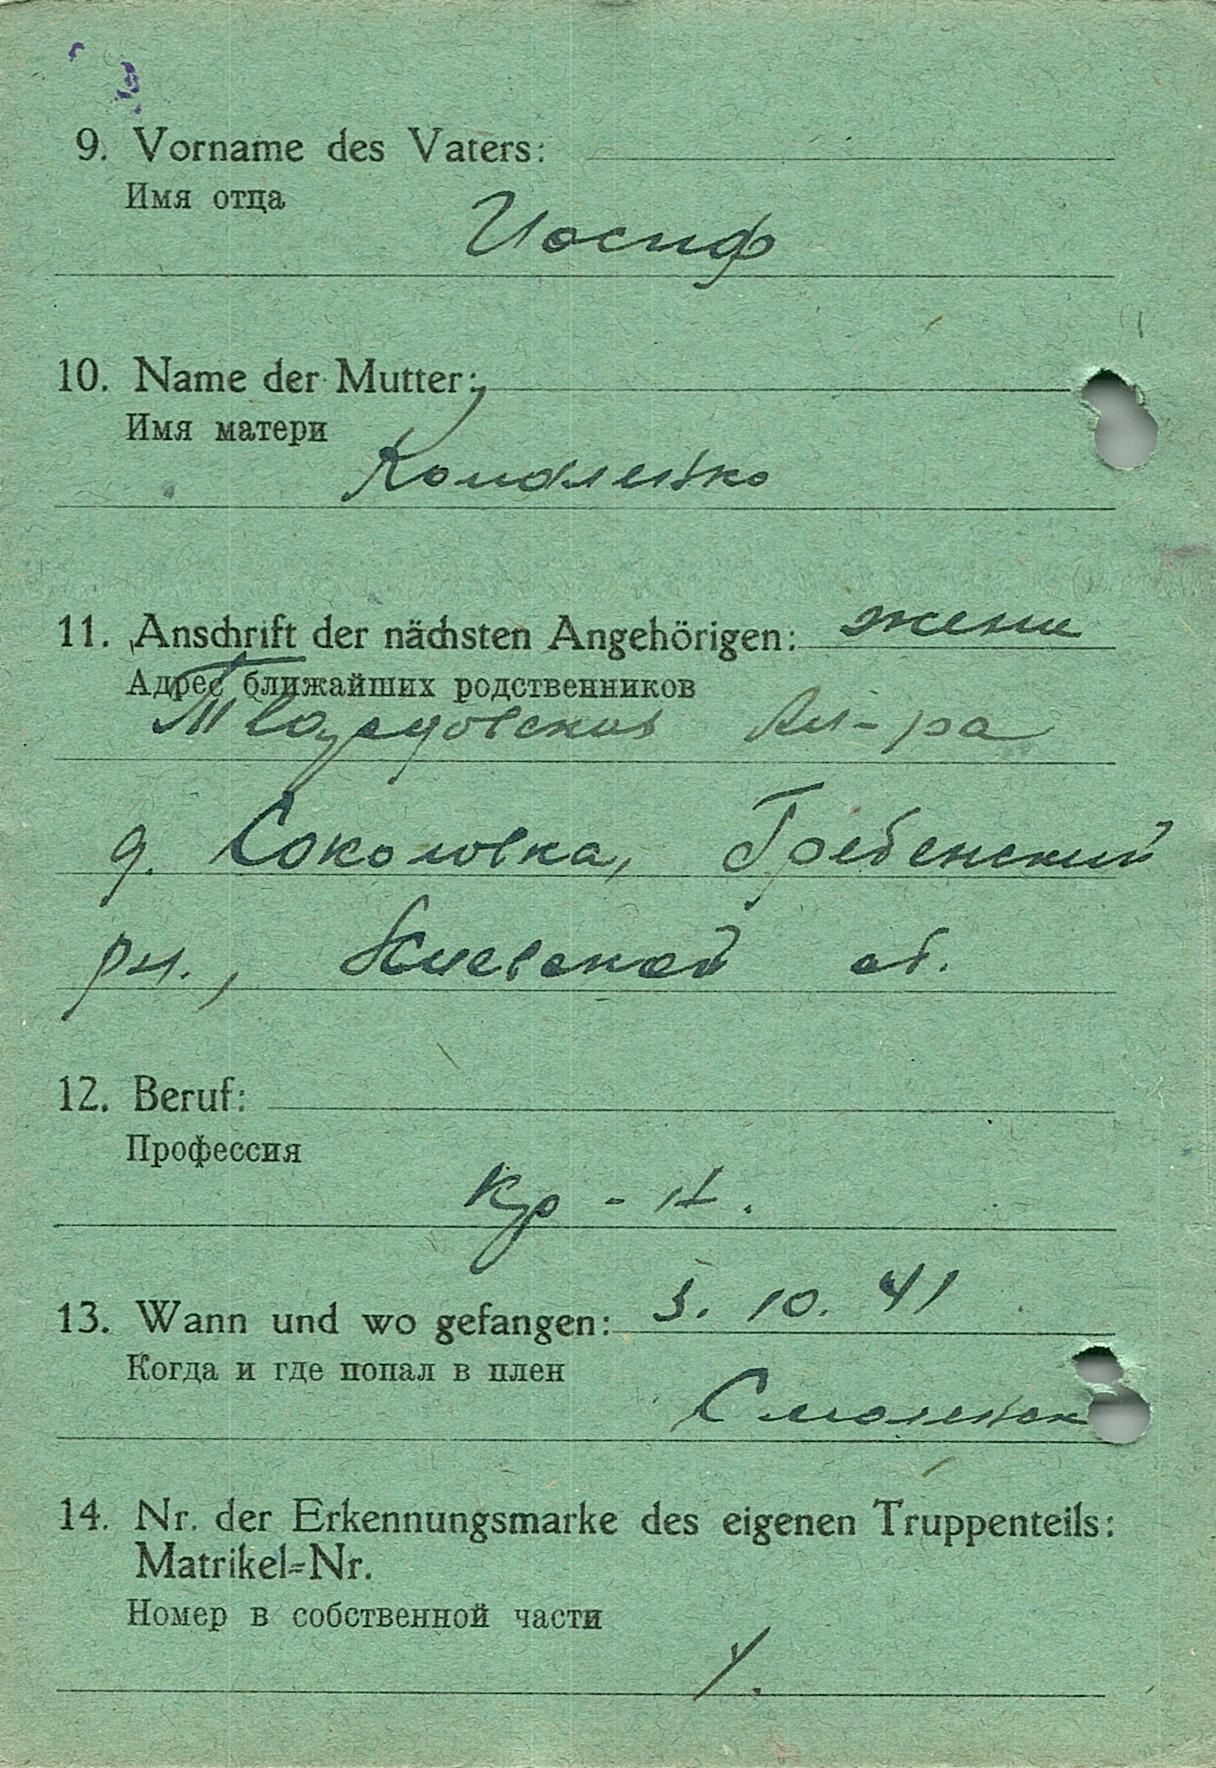 9. Vorname des Vaters:
Имя отца
Иосиф
10. Name der Mutter:
Имя матери
Коваленко
11. Anschrift der nächsten Angehörigen: жена
Адрес ближайших родственников
Ал-ра
д. Соколовка, Гребенский
рн., Киевской об.
12. Beruf:
Профессия
Кр-н.
13. Wann und wo gefangen: 3. 10. 41
Когда и где попал в плен
Смоленск
14. Nr. der Erkennungsmarke des eigenen Truppenteils:
Matrikel-Nr.
Номер в собственной части